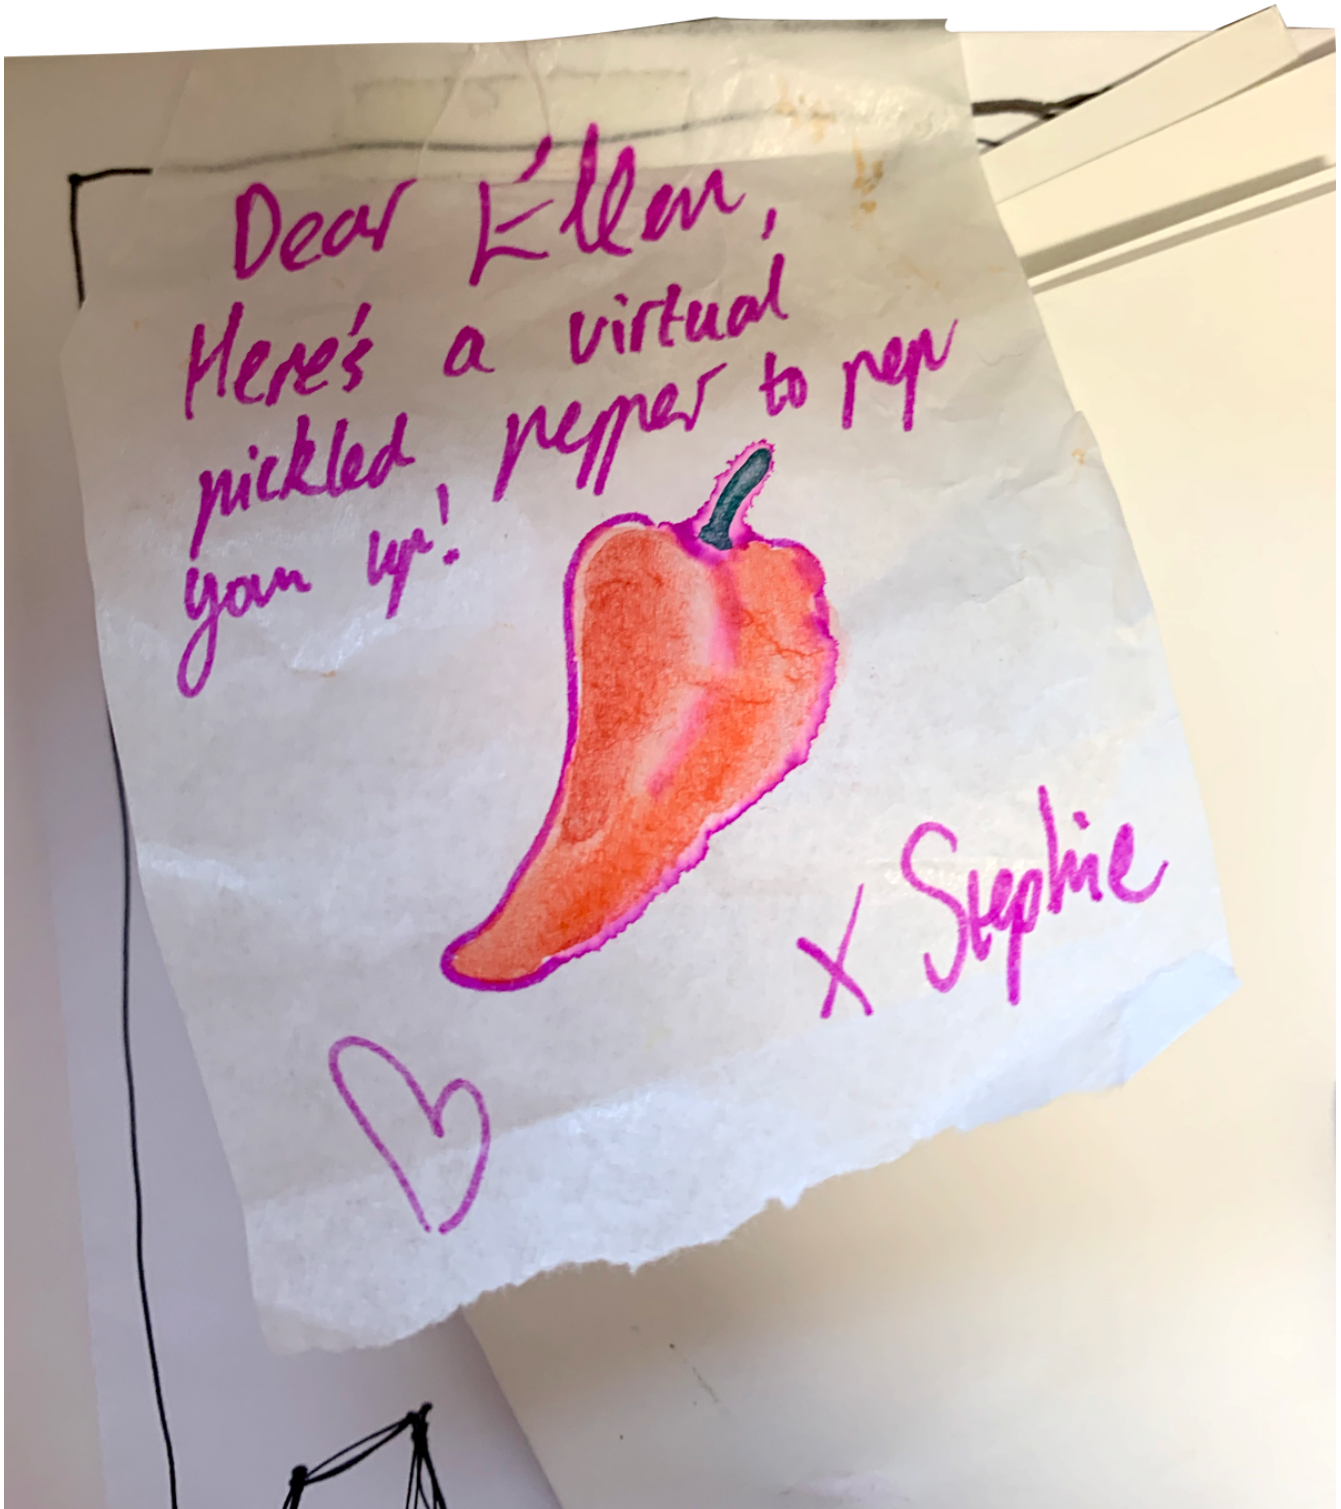 Dear Ellen,
Here's a virtual
pickled pepper to pep
you up!
x Stephie